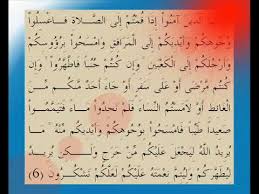 الَّذِينَ آمَنُواْ إِذَا قُمْتُمْ إِلَى الصَّلاةِ فاغْسِلُواْ
وُجُوهَكُمْ وَأَيْدِيَكُمْ إِلَى الْمَرَافِقِ وَامْسَحُواْ بِرُؤُوسِكُمْ
وَأَرْجُلَكُمْ إِلَى الْكَعْبَينِ وَإِن كُنتُمْ جُنُبًا فَاطَّهَّرُواْ وَإِن
كُنتُم مَّرْضَى أَوْ عَلَى سَفَرٍ أَوْ جَاء أَحَدٌ مَّنكُم مِّنَ
الْغَائِطِ أَوْ لاَمَسْتُمُ النِّسَاء فَلَمْ تَجِدُواْ مَاء فَتَيَمَّمُواْ
صَعِيدًا طَيِّبًا فَامْسَحُواْ بِوُجُوهِكُمْ وَأَيْدِيكُم مِّنْهُ مَا
يُرِيدُ اللّهُ لِيَجْعَلَ عَلَيْكُم مِّنْ حَرَجٍ وَلَكِن يُرِيدُ
لِيُطَهَّرَكُمْ وَلِيُتِمَّ نِعْمَتَهُ عَلَيْكُمْ لَعَلَّكُمْ تَشْكُرُونَ (6)